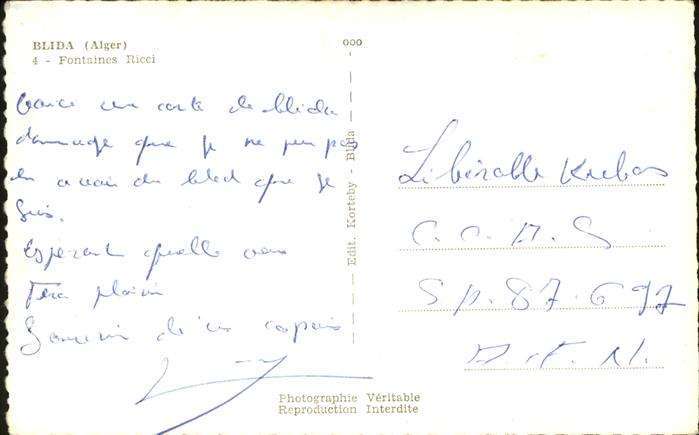 BLIDA (Alger)
4 - Fontaines Ricci
Voici un carte de blida
dommage que je ne peu pas
en avoir du bled que je
suis.
Esperant quelle vous
Fera plaisir
Souvenir de un copain
000
Edit. Korteby - Blida
Libéralle
C. C. A. S
S p. 87.697
A. F. N.
Photographie Véritable
Reproduction Interdite